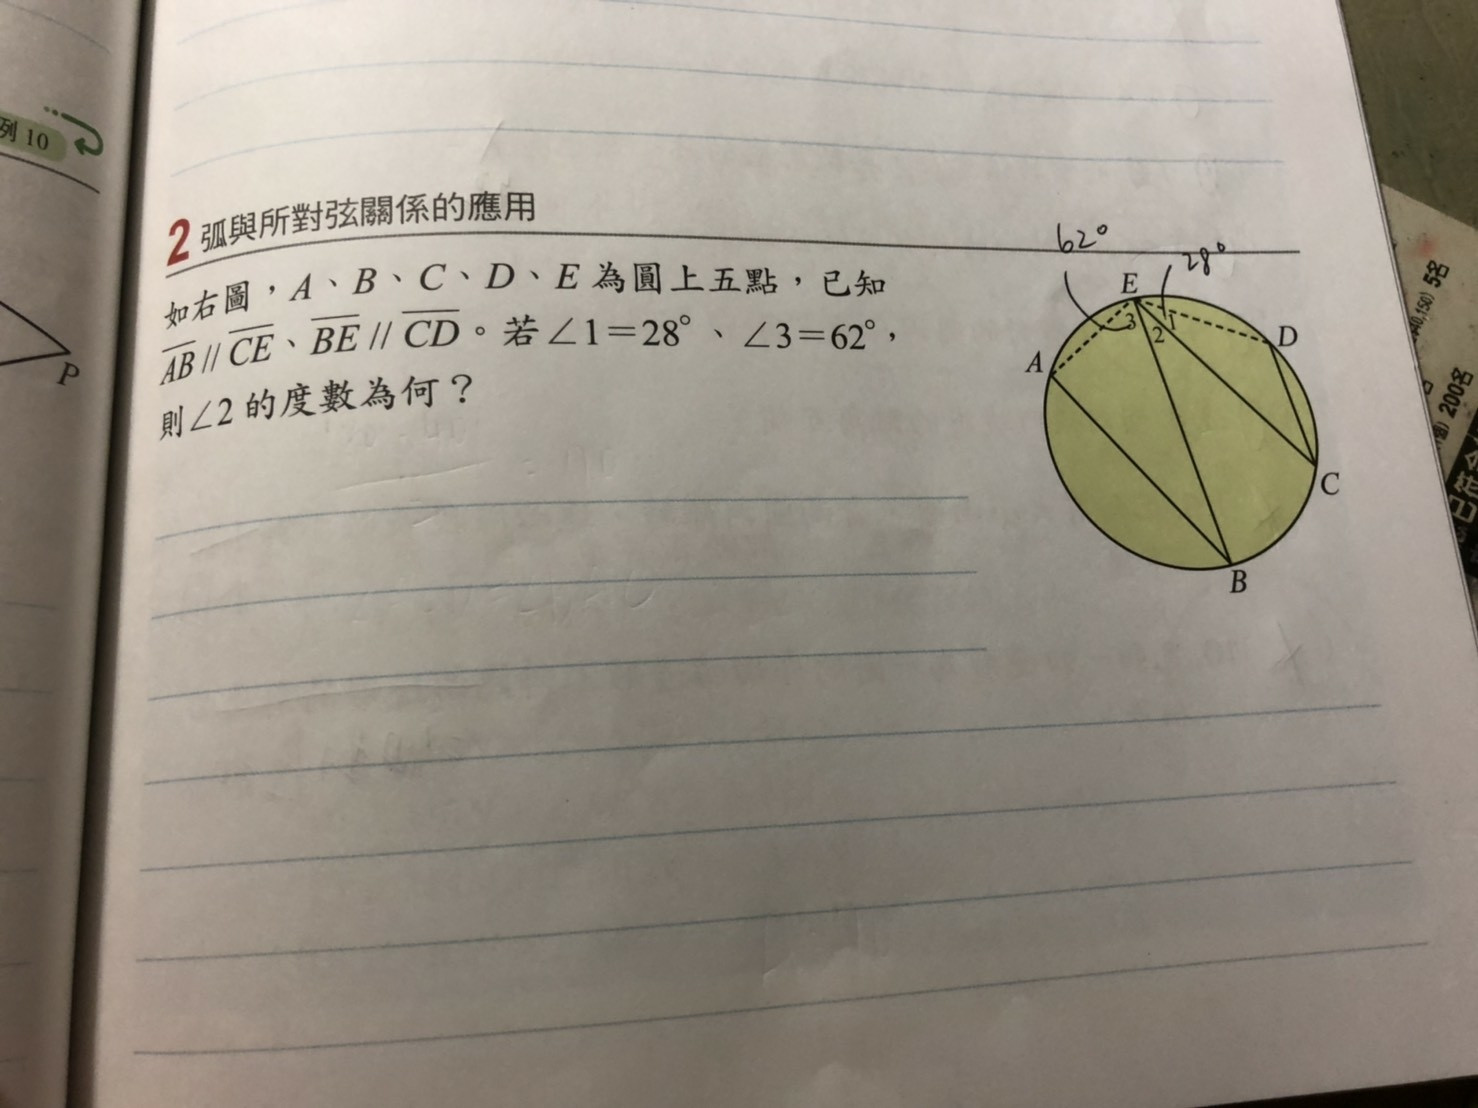 列 10
P
2 弧與所對弦關係的應用
如右圖，A、B、C、D、E 為圓上五點，已知
AB // CE、BE // CD。若∠1＝28°、∠3＝62°，
則∠2 的度數為何？
62°
28°
E
3
2
1
D
A
C
B
5名
200名